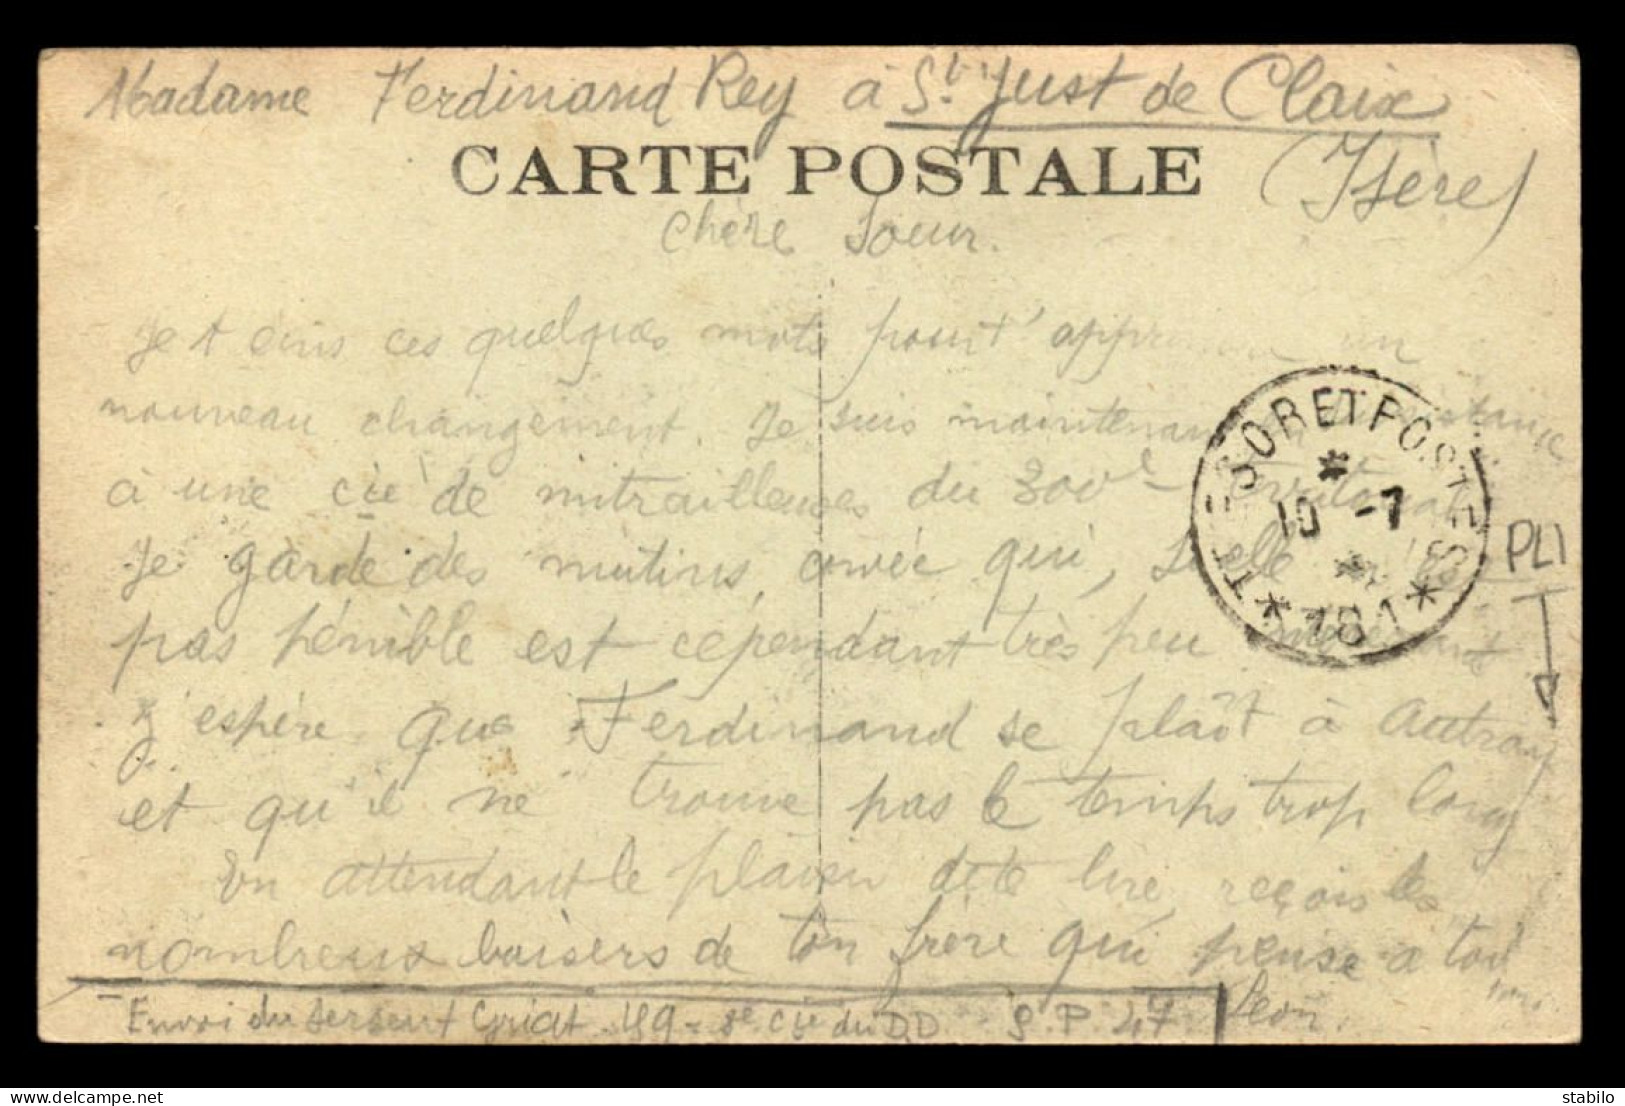 Madame Ferdinand Rey à St Just de Claix
CARTE POSTALE
(Isère)
Chère Soeur.
Je t'ecris ces quelques mots pour t'apprendre un
nouveau changement. Je suis maintenant en subsistance
à une Cie de mitrailleuses du 300e Territorial
Je garde des mutins, corvée qui, si elle n'est
pas pénible est cépendant très peu intéressante
J'espère que Ferdinand se plaît à Autrans
et qu'il ne trouve pas le temps trop long
En attendant le plaisir de te lire reçois les
nombreux baisers de ton frère qui pense a toi
Léon.
Envoi du sergent Griat 8e Cie du DD S.P. 47
TRESOR ET POSTES
10 -7
* 181 *
PLI
stabilo